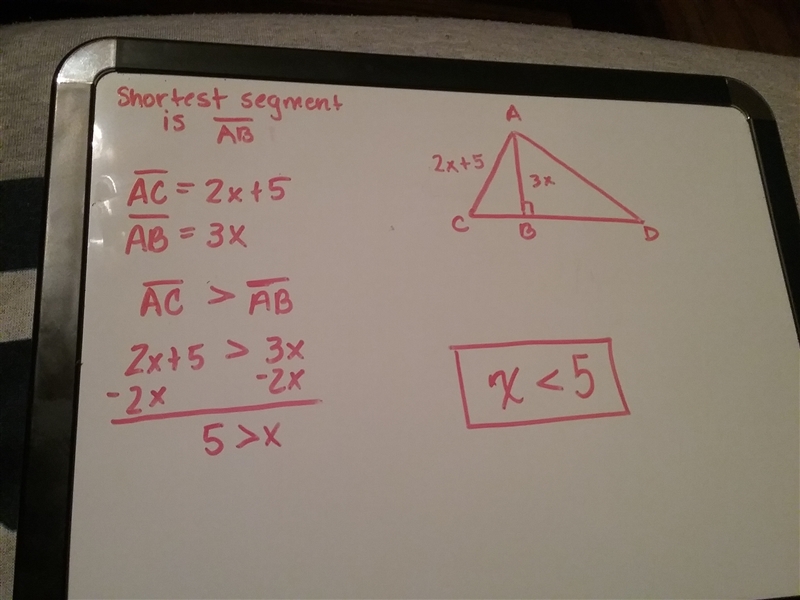 Shortest segment
is AB
AC = 2x+5
AB = 3x
AC > AB
2x+5 > 3x
-2x -2x
5 > x
A
2x+5
3x
C
B
D
x < 5